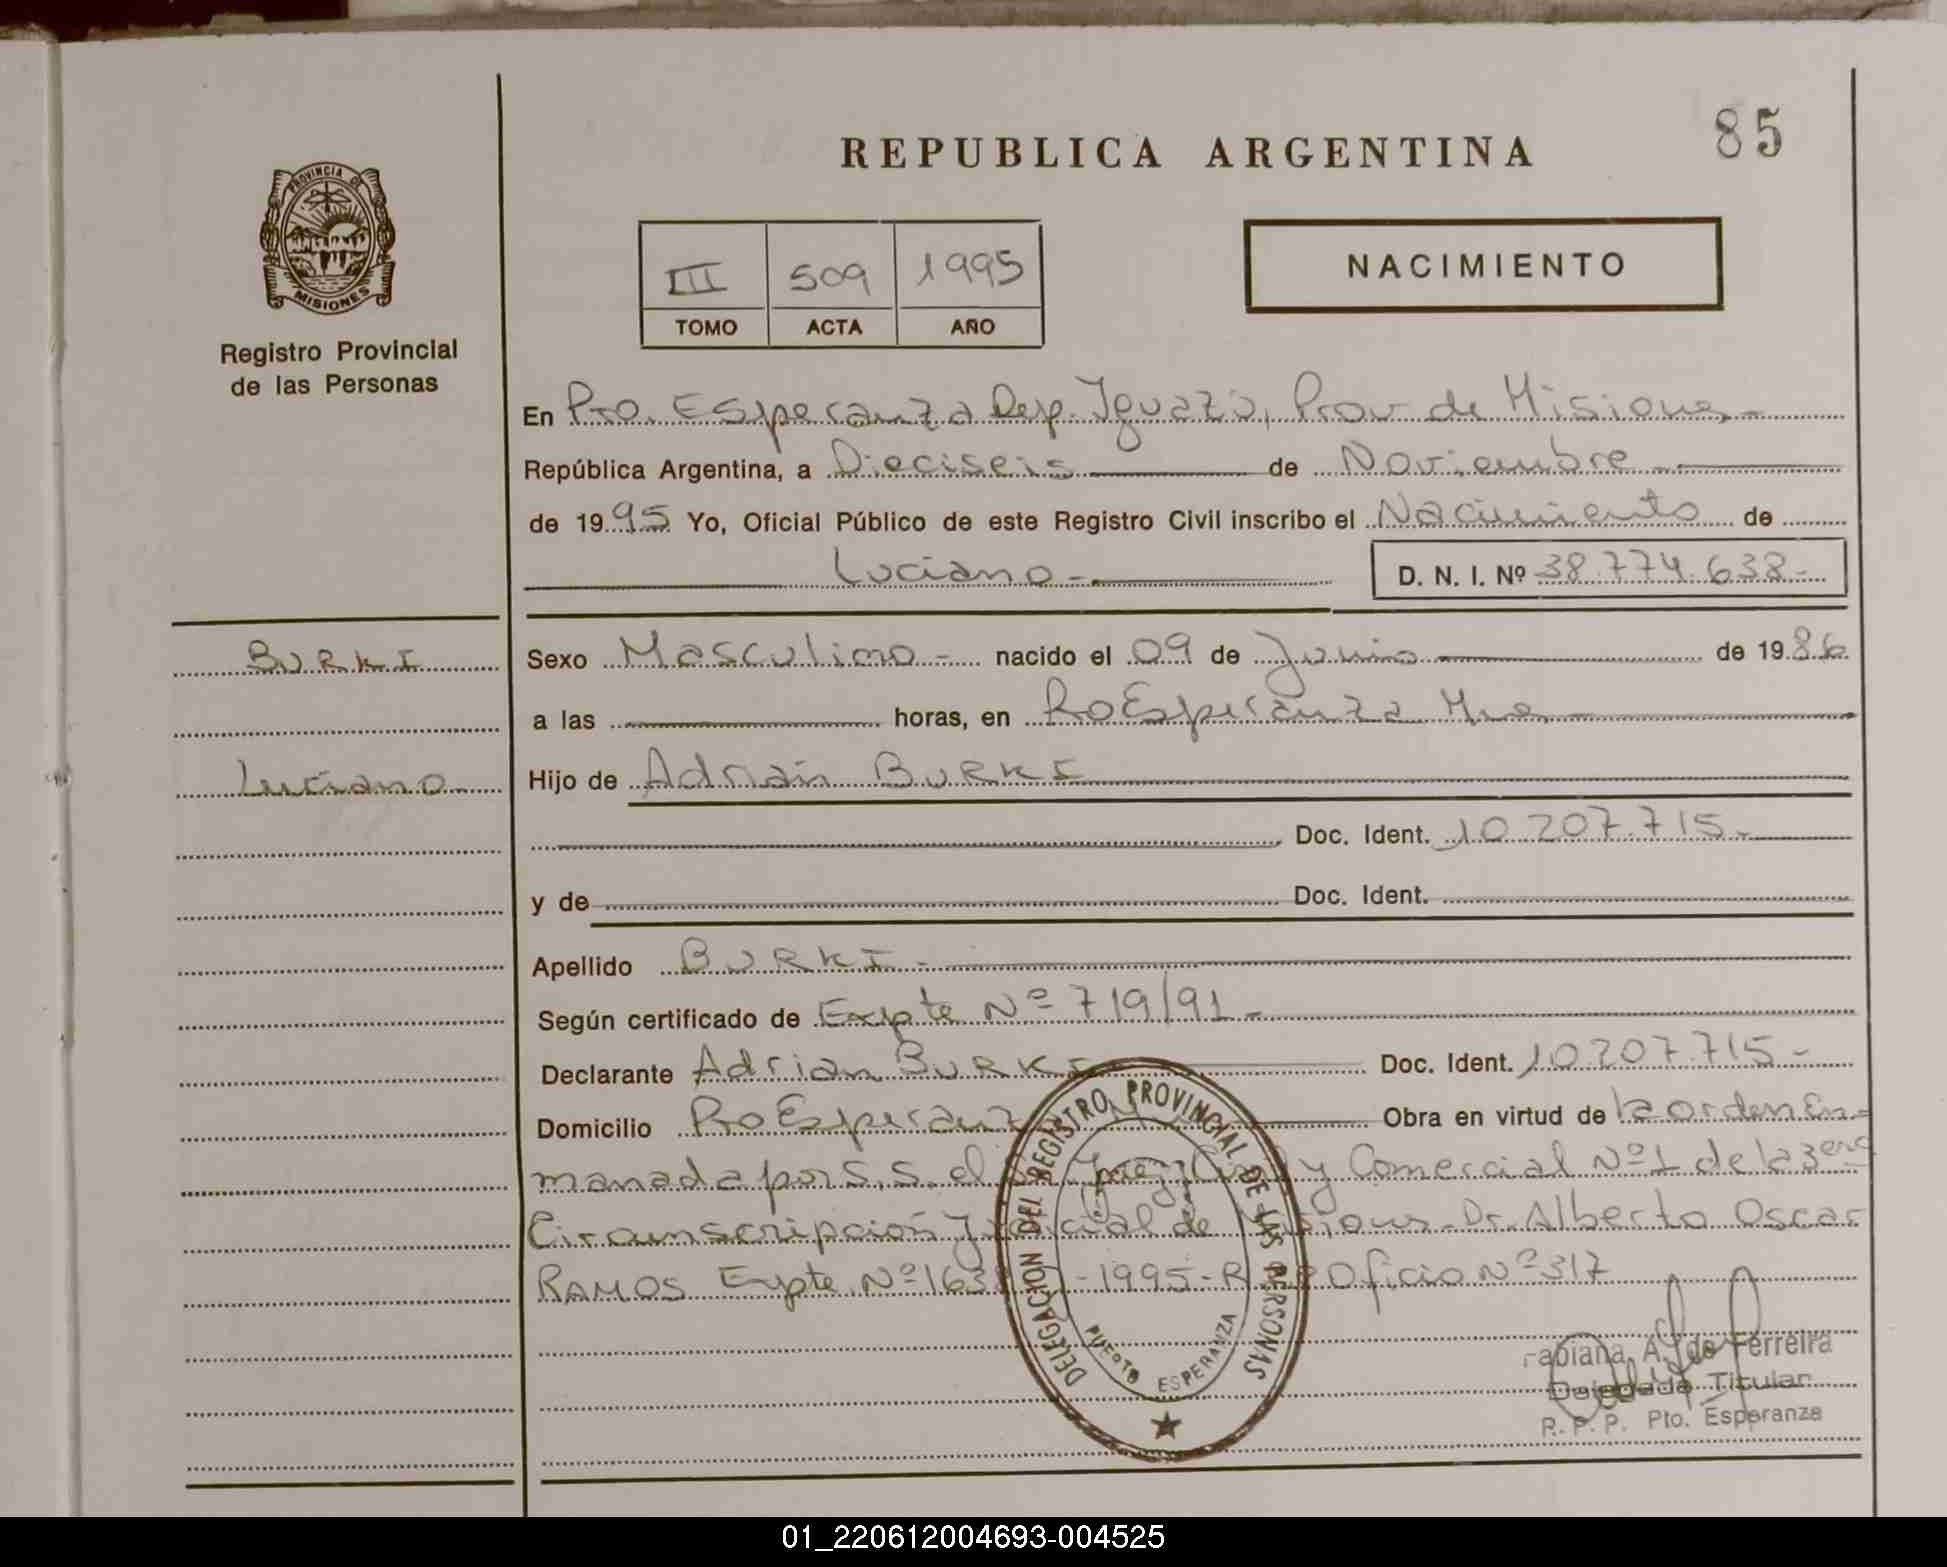 85
REPUBLICA ARGENTINA
PROVINCIA DE
MISIONES
Registro Provincial
de las Personas
III 509 1995
TOMO ACTA AÑO
NACIMIENTO
En Pto. Esperanza Dep. Iguazú, Prov de Misiones
República Argentina, a Dieciseis de Noviembre
de 1995 Yo, Oficial Público de este Registro Civil inscribo el Nacimiento de
Luciano
D. N. I. Nº 38.774.638-
BURKI
Sexo Masculino - nacido el 09 de Junio de 1986
a las horas, en Pto Esperanza Mnes
Luciano
Hijo de Adrián BURKI
Doc. Ident. 10.207.715-
y de Doc. Ident.
Apellido BURKI -
Según certificado de Expte Nº 719/91 -
Declarante Adrian BURKI Doc. Ident. 10.207.715 -
Domicilio Pto Esperanza Obra en virtud de la orden Em=
manada por S.S. el Juez Civil y Comercial Nº 1 de la 3era
Circunscripción Judicial de Misiones Dr. Alberto Oscar
RAMOS Expte Nº 163 -1995-R Oficio Nº 317
DELEGACION DEL REGISTRO PROVINCIAL DE LAS PERSONAS
PUERTO ESPERANZA
Fabiana A. de Ferreira
Delegada Titular
R. P. P. Pto. Esperanza
01_220612004693-004525